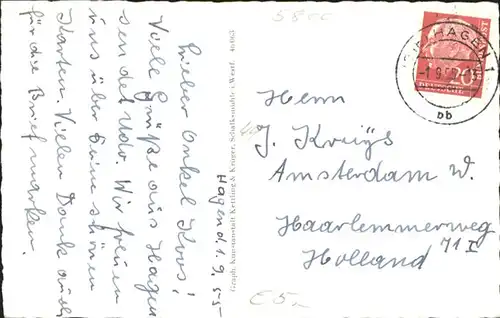 Hagen d. 1. 9. 55
Lieber Onkel Koos!
Viele Grüße aus Hagen
sendet Udo. Wir freuen
uns über Deine schönen
Karten. Vielen Dank auch
für die Briefmarken.
Graph. Kunstanstalt Kettling & Krüger, Schalksmühle i. Westf.
58cc
HAGEN 1
-1.9.55
bb
20
DEUTSCHE
Herrn
J. Kruijs
Amsterdam W.
Haarlemmerweg
71 I
Holland
€5,-